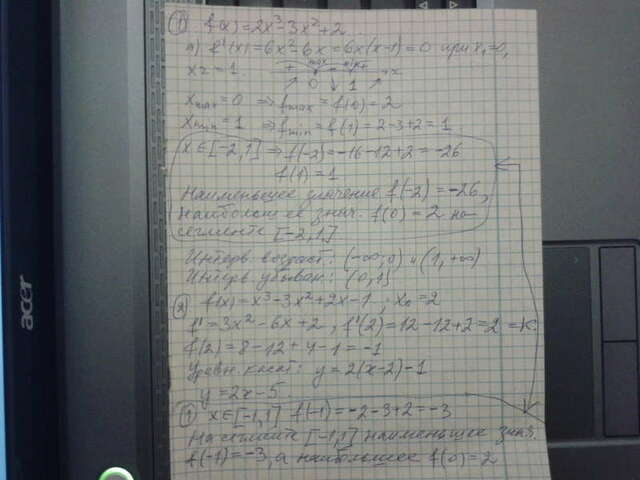 ① f(x)=2x³-3x²+2
а) f'(x)=6x²-6x=6x(x-1)=0 при x₁=0,
x₂=1. + max - min + →x
↗ 0 ↘ 1 ↗
xmax=0 ⇒ fmax=f(0)=2
xmin=1 ⇒ fmin=f(1)=2-3+2=1
x∈[-2,1] ⇒ f(-2)=-16-12+2=-26
f(1)=1
Наименьшее значение f(-2)=-26,
наибольшее знач. f(0)=2 на
сегменте [-2,1]
Интерв. возраст.: (-∞,0) и (1,+∞)
Интерв. убыван.: (0,1)
② f(x)=x³-3x²+2x-1, x₀=2
f'=3x²-6x+2, f'(2)=12-12+2=2=K
f(2)=8-12+4-1=-1
Уравн. касат.: y=2(x-2)-1
y=2x-5.
① x∈[-1,1] f(-1)=-2-3+2=-3
На сегменте [-1,1] наименьшее знач.
f(-1)=-3, а наибольшее f(0)=2
acer